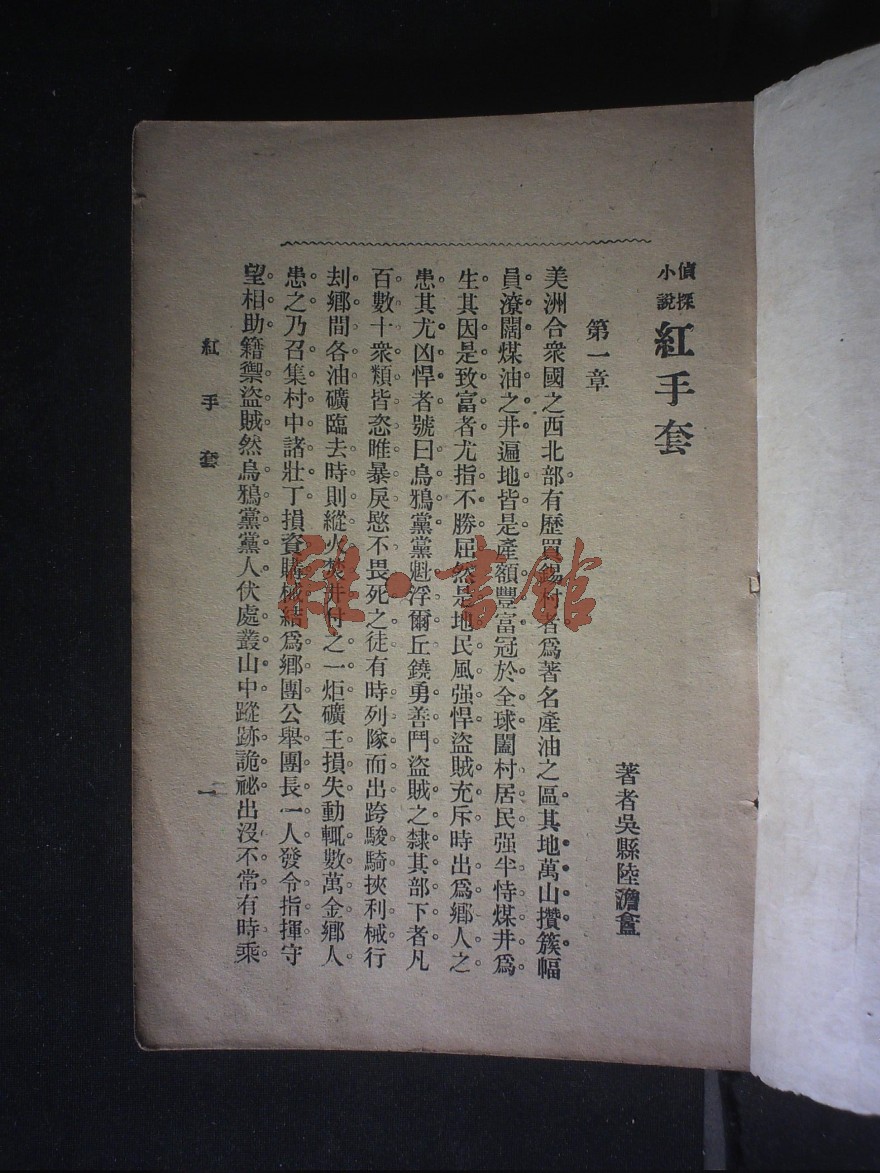 偵探小說 紅手套
著者吳縣陸澹盦
第一章
美洲合衆國之西北部有歷買錫村者爲著名產油之區其地萬山攢簇幅
員潦闊煤油之井遍地皆是產額豐富冠於全球闔村居民强半恃煤井爲
生其因是致富者尤指不勝屈然是地民風强悍盜賊充斥時出爲鄉人之
患其尤凶悍者號曰烏鴉黨黨魁浮爾丘鐃勇善鬥盜賊之隸其部下者凡
百數十衆類皆恣睢暴戾慜不畏死之徒有時列隊而出跨駿騎挾利械行
刦鄉間各油礦臨去時則縱火焚井付之一炬礦主損失動輒數萬金鄉人
患之乃召集村中諸壯丁損資購械結爲鄉團公舉團長一人發令指揮守
望相助籍禦盜賊然烏鴉黨黨人伏處叢山中蹤跡詭祕出沒不常有時乘
紅手套
一
雜·書館